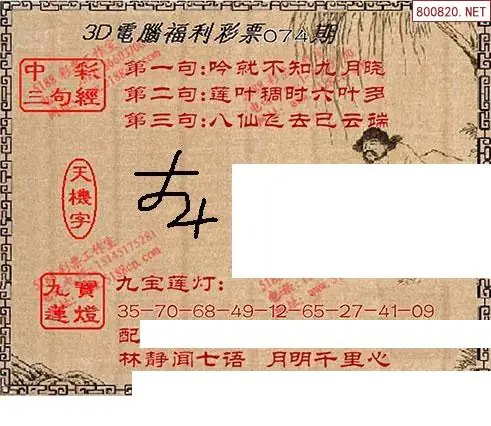 800820.NET
3D電腦福利彩票074期
中彩三句經
第一句:吟就不知九月晓
第二句:莲叶稠时六叶多
第三句:八仙飞去已云端
天機字
九寶蓮燈
九宝莲灯:
35-70-68-49-12-65-27-41-09
配
林静闻七语 月明千里心